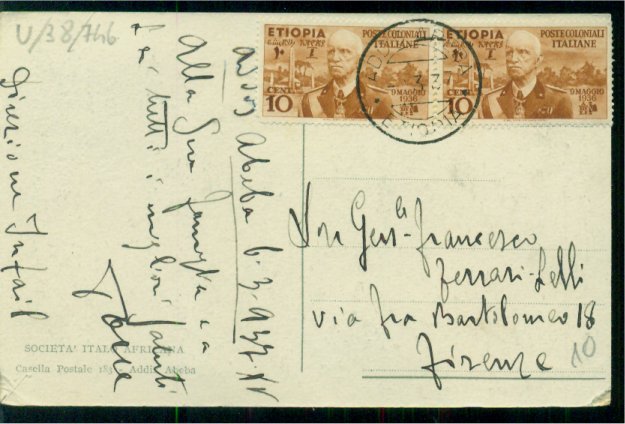 U/38/746
ETIOPIA POSTE COLONIALI
ITALIANE
10
CENT.
9 MAGGIO
1936
ETIOPIA POSTE COLONIALI
ITALIANE
10
CENT.
9 MAGGIO
1936
ADDIS ABEBA
ETIOPIA
Addis Abeba 6.3.937.XV
Alla Sua famiglia e a
Lei tutti i migliori saluti
Direzione
Sen. Gen.le Francesco
Ferrari-Lelli
via Fra Bartolomeo 18
Firenze
10
SOCIETA' ITALO AFRICANA
Casella Postale 183 Addis Abeba